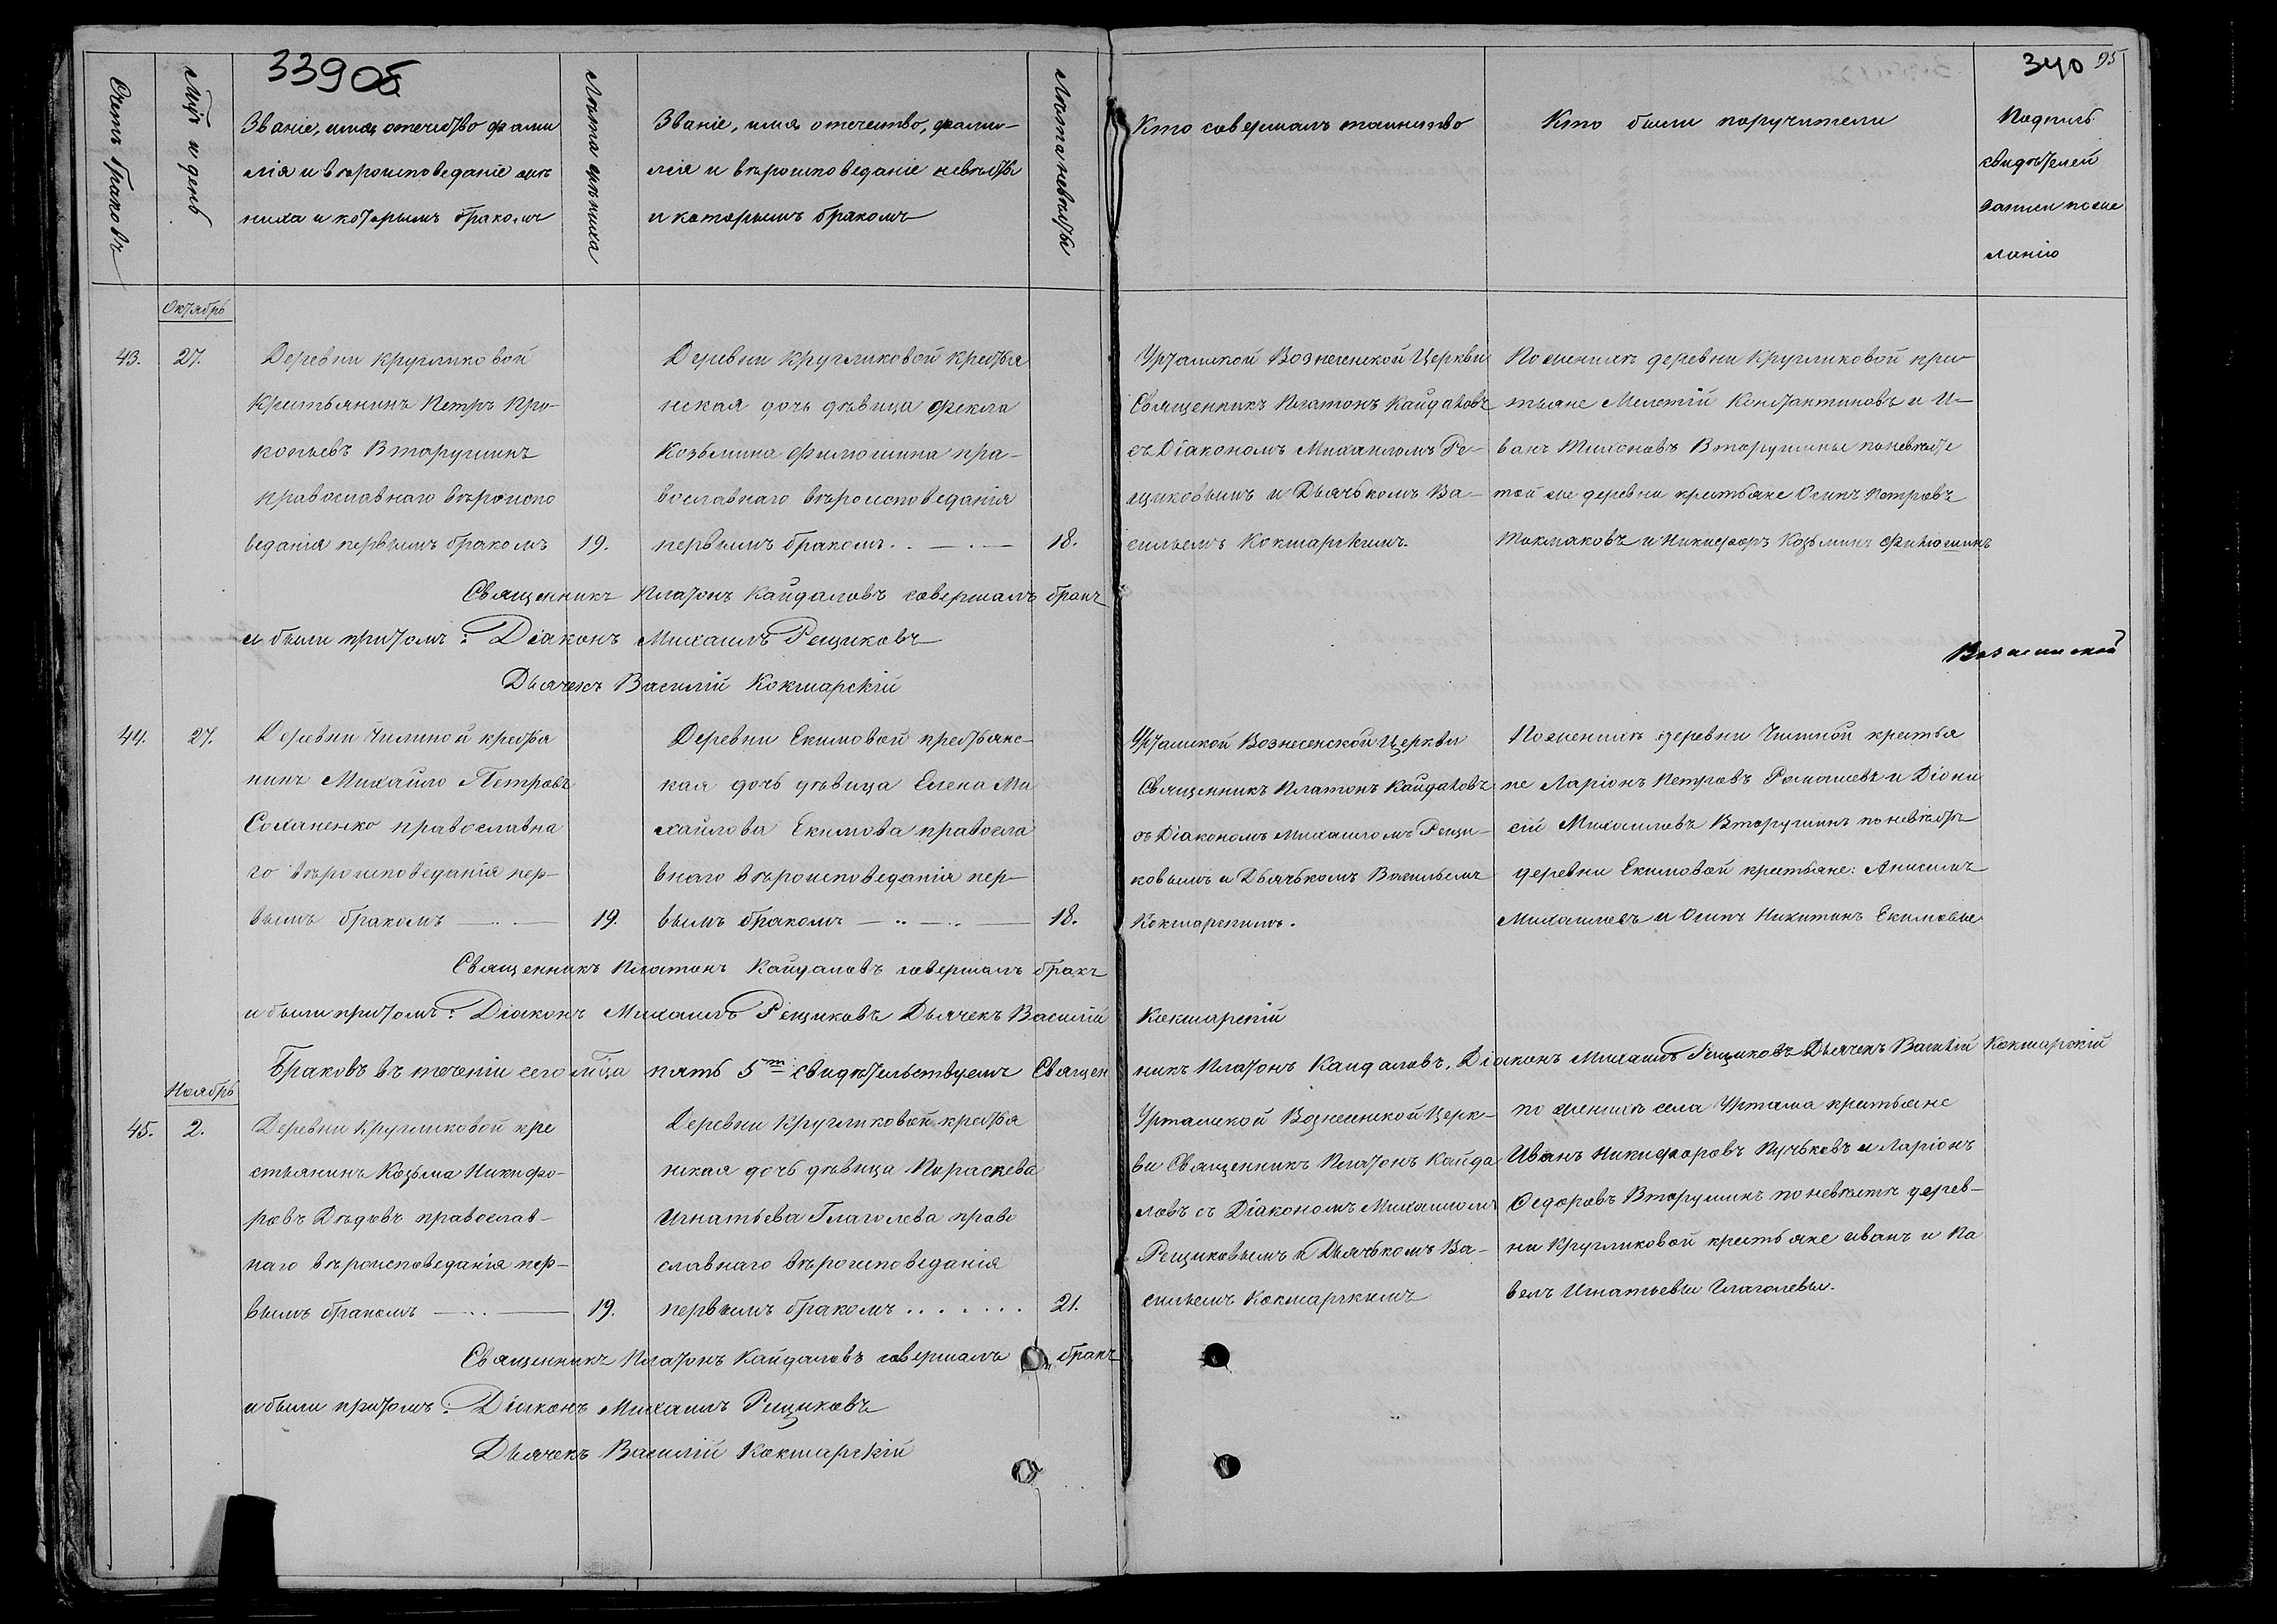 339об
340
95
Счетъ браковъ
Мцъ и день
Званіе, имя, отечество фами
лія и вѣроисповеданіе же
ниха и которымъ бракомъ
Лѣта жениха
Званіе, имя отечество, фами-
лія и вѣроисповеданіе невѣсты
и которымъ бракомъ
Лѣта невѣсты
Кто совершалъ таинство
Кто были поручители
Подпись
свидѣтелей
записи по же
ланію
Октябрь
43.
27.
Деревни Кругликовой
Крестьянинъ Петръ Про-
копьевъ Вторушинъ
православнаго вѣроиспо
веданія первымъ бракомъ
19.
Деревни Кругликовой крестья
нская дочь дѣвица Фекла
Козьмина Филюшина пра-
вославнаго вѣроисповеданія
первымъ бракомъ
18.
Уртамской Вознесенской Церкви
Священникъ Платонъ Кайдаловъ
съ Діакономъ Михаиломъ Ре-
щиковымъ и Дьячькомъ Ва-
сильемъ Кокшарскимъ.
По женихѣ деревни Кругликовой крес
тьяне Мелетій Константиновъ и И-
ванъ Тихоновъ Вторушины по невѣсте
той же деревни крестьяне Осипъ Петровъ
Токмаковъ и Никифоръ Козьминъ Филюшинъ
Священникъ Платонъ Кайдаловъ совершалъ бракъ
и были притомъ: Діаконъ Михаилъ Рещиковъ
Дьячекъ Василій Кокшарскій
44.
27.
Деревни Чилиной крестья
нинъ Михайло Петровъ
Соханенко православна
го вѣроисповеданія пер-
вымъ бракомъ
19.
Деревни Екимовой крестьянс-
кая дочь дѣвица Елена Ми
хайлова Екимова правосла
внаго вѣроисповеданія пер-
вымъ бракомъ
18.
Уртамской Вознесенской Церкви
Священникъ Платонъ Кайдаловъ
съ Діакономъ Михаиломъ Рещи-
ковымъ и Дьячькомъ Васильемъ
Кокшарскимъ.
По женихѣ деревни Чилиной крестья
не Ларіонъ Петровъ и Діони
сій Михаиловъ Вторушинъ по невѣсте
деревни Екимовой крестьяне: Анисимъ
Михаиловъ и Осипъ Никитинъ Екимовы
Священникъ Платонъ Кайдаловъ совершалъ бракъ
и были притомъ: Діаконъ Михаилъ Рещиковъ Дьячекъ Василій Кокшарскій
Браковъ въ теченіи сего мца пять 5ть свидѣтельствуемъ Священникъ Платонъ Кайдаловъ, Діаконъ Михаилъ Рещиковъ Дьячекъ Василій Кокшарскій
Ноябрь
45.
2.
Деревни Кругликовой кре
стьянинъ Козьма Никифо-
ровъ Дѣдовъ православ-
наго вѣроисповеданія пер-
вымъ бракомъ
19.
Деревни Кругликовой крестья
нская дочь дѣвица Параскева
Игнатьева Глаголева право
славнаго вѣроисповеданія
первымъ бракомъ
21.
Уртамской Вознесенской Церк-
ви Священникъ Платонъ Кайда
ловъ съ Діакономъ Михаиломъ
Рещиковымъ и Дьячькомъ Ва-
сильемъ Кокшарскимъ
по женихѣ села Уртама крестьяне
Иванъ Никифоровъ Пучьковъ и Ларіонъ
Федоровъ Вторушинъ по невѣсте дерев-
ни Кругликовой крестьяне Иванъ и Па
велъ Игнатьевы Глаголевы.
Священникъ Платонъ Кайдаловъ совершалъ бракъ
и были притомъ: Діаконъ Михаилъ Рещиковъ
Дьячекъ Василій Кокшарскій